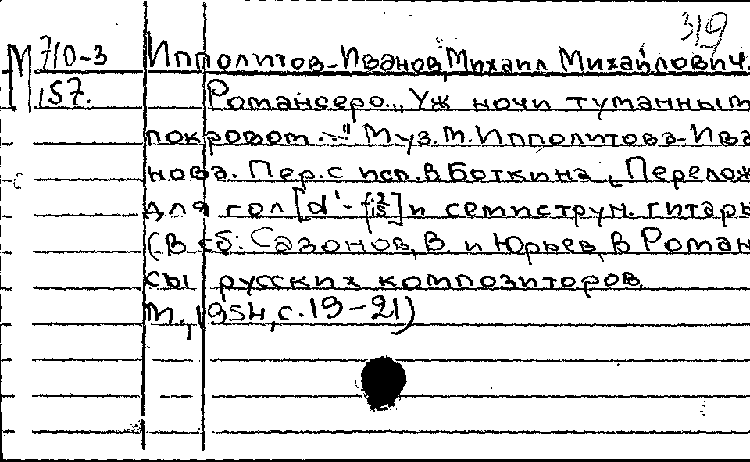 319
М 710-3 Ипполитов-Иванов, Михаил Михайлович.
157. Романсеро. „Уж ночи туманным
покровом ..." Муз. М. Ипполитова-Ива
нова. Пер. с исп. В. Боткина, Перелож
для гол [d'- ] и семиструн. гитары
(В сб: Сазонов, В. и Юрьев, В. Роман
сы русских композиторов
М., 1954, с. 19-21)